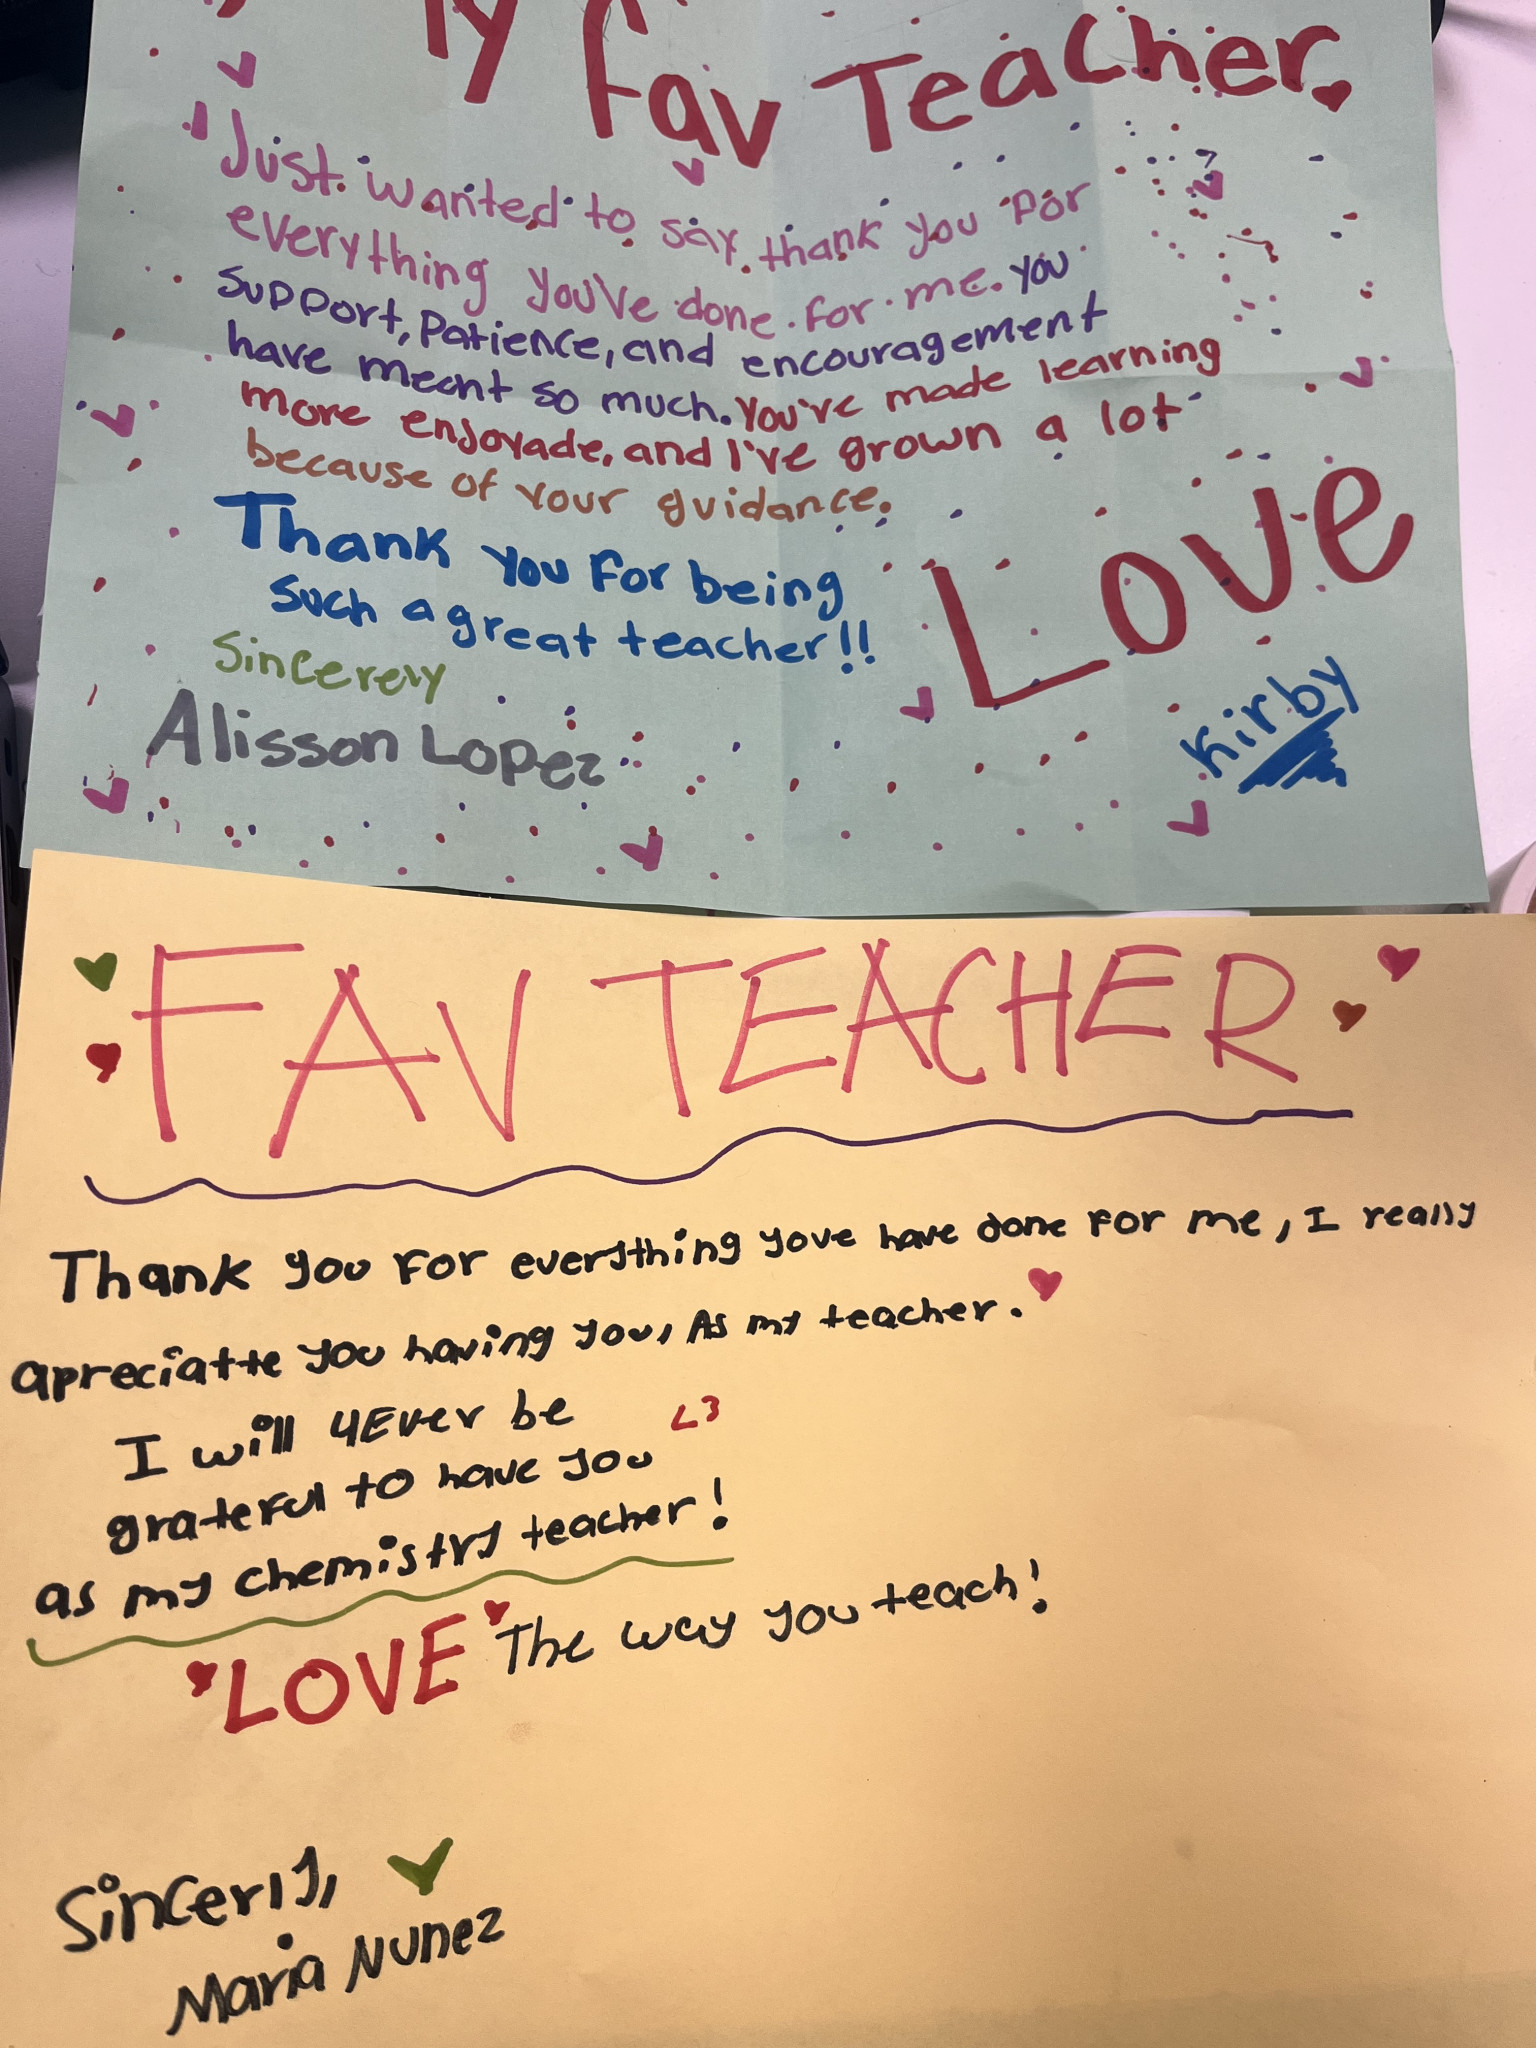 Fav Teacher
Just wanted to say thank you for
everything you've done for me. you
support, patience, and encouragement
have meant so much. You've made learning
more enjoyade, and I've grown a lot
because of your guidance.
Thank you for being
such a great teacher!!
Sincerely
Alisson Lopez
Love
Kirby
FAV TEACHER
Thank you for everything yove have done for me, I really
apreciatte you having you, As my teacher.
I will 4Ever be
grateful to have you <3
as my chemistry teacher!
LOVE The way you teach!
Sincerly,
Maria Nunez